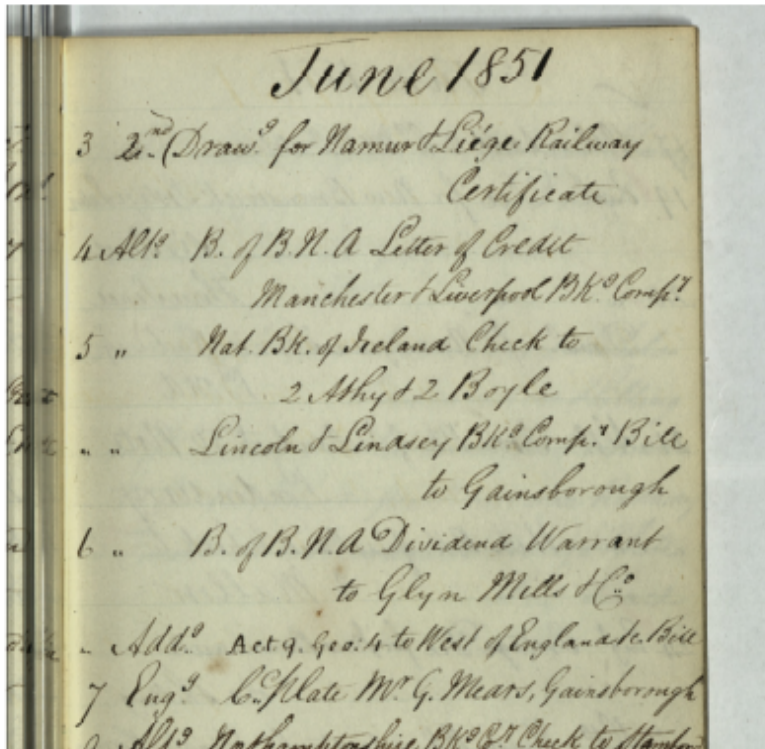 June 1851
3 2nd (Drawg for Namur & Liége Railway
Certificate
4 Altg B. of B.N.A Letter of Credit
Manchester & Liverpool BKg Compy
5 " Nat. Bk. of Ireland Check to
2 Athy & 2 Boyle
" " Lincoln & Lindsey BKg Compy Bill
to Gainsborough
6 " B. of B.N.A Dividend Warrant
to Glyn Mills & Co
" Addg Act 9. Geo: 4 to West of England &c. Bill
7 Engg C. Plate Mr G. Mears, Gainsborough
Altg Northamptonshire BKg Cy Check to